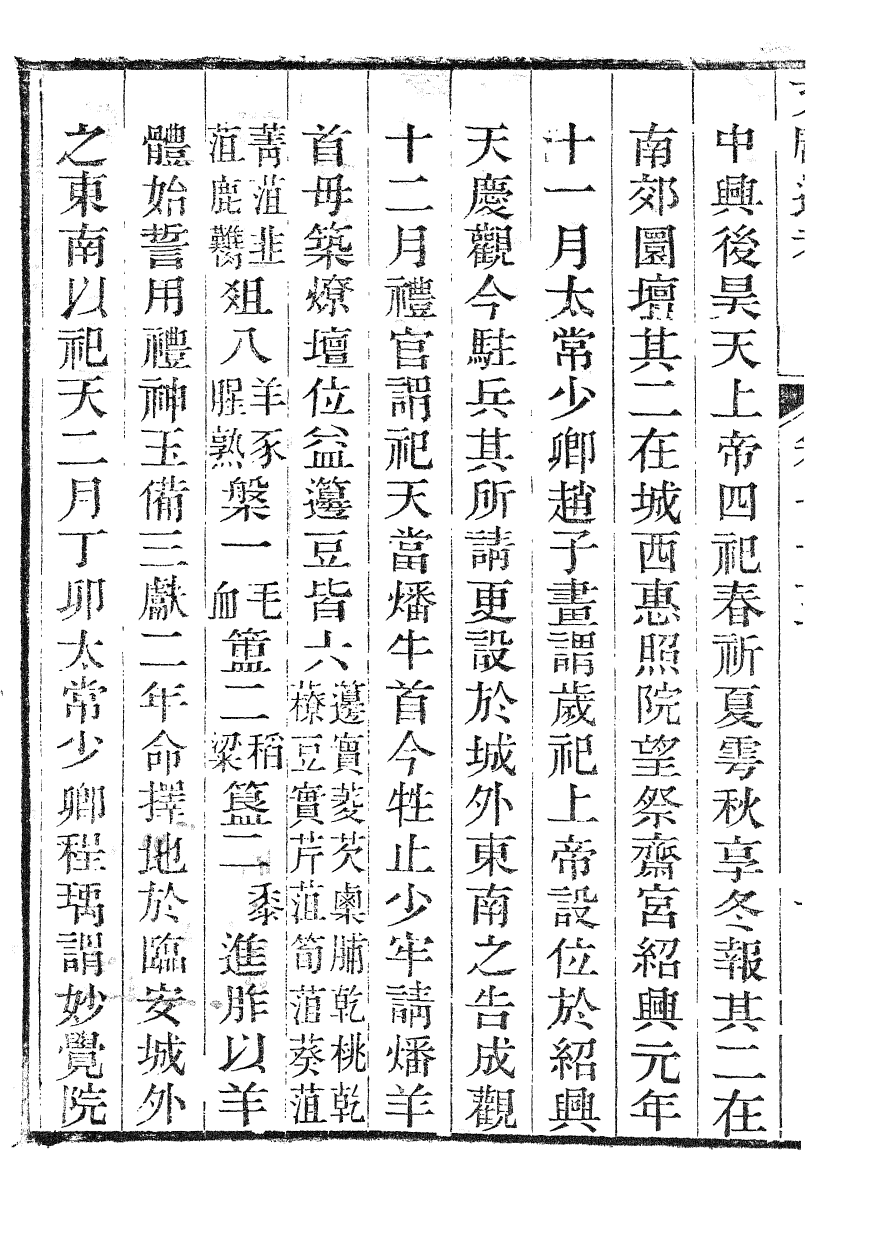 中興後昊天上帝四祀春祈夏雩秋享冬報其二在
南郊圜壇其二在城西惠照院望祭齋宮紹興元年
十一月太常少卿趙子畫謂歲祀上帝設位於紹興
天慶觀今駐兵其所請更設於城外東南之告成觀
十二月禮官謂祀天當燔牛首今牲止少牢請燔羊
首毋築燎壇位益籩豆皆六籩實菱芡㮚脯乾桃乾榛豆實芹菹筍菹葵菹
菁菹韭菹鹿臡俎八羊豕腥熟槃一毛血簠二稻粱簋二黍進胙以羊
體始誓用禮神玉備三獻二年命擇地於臨安城外
之東南以祀天二月丁卯太常少卿程瑀謂妙覺院